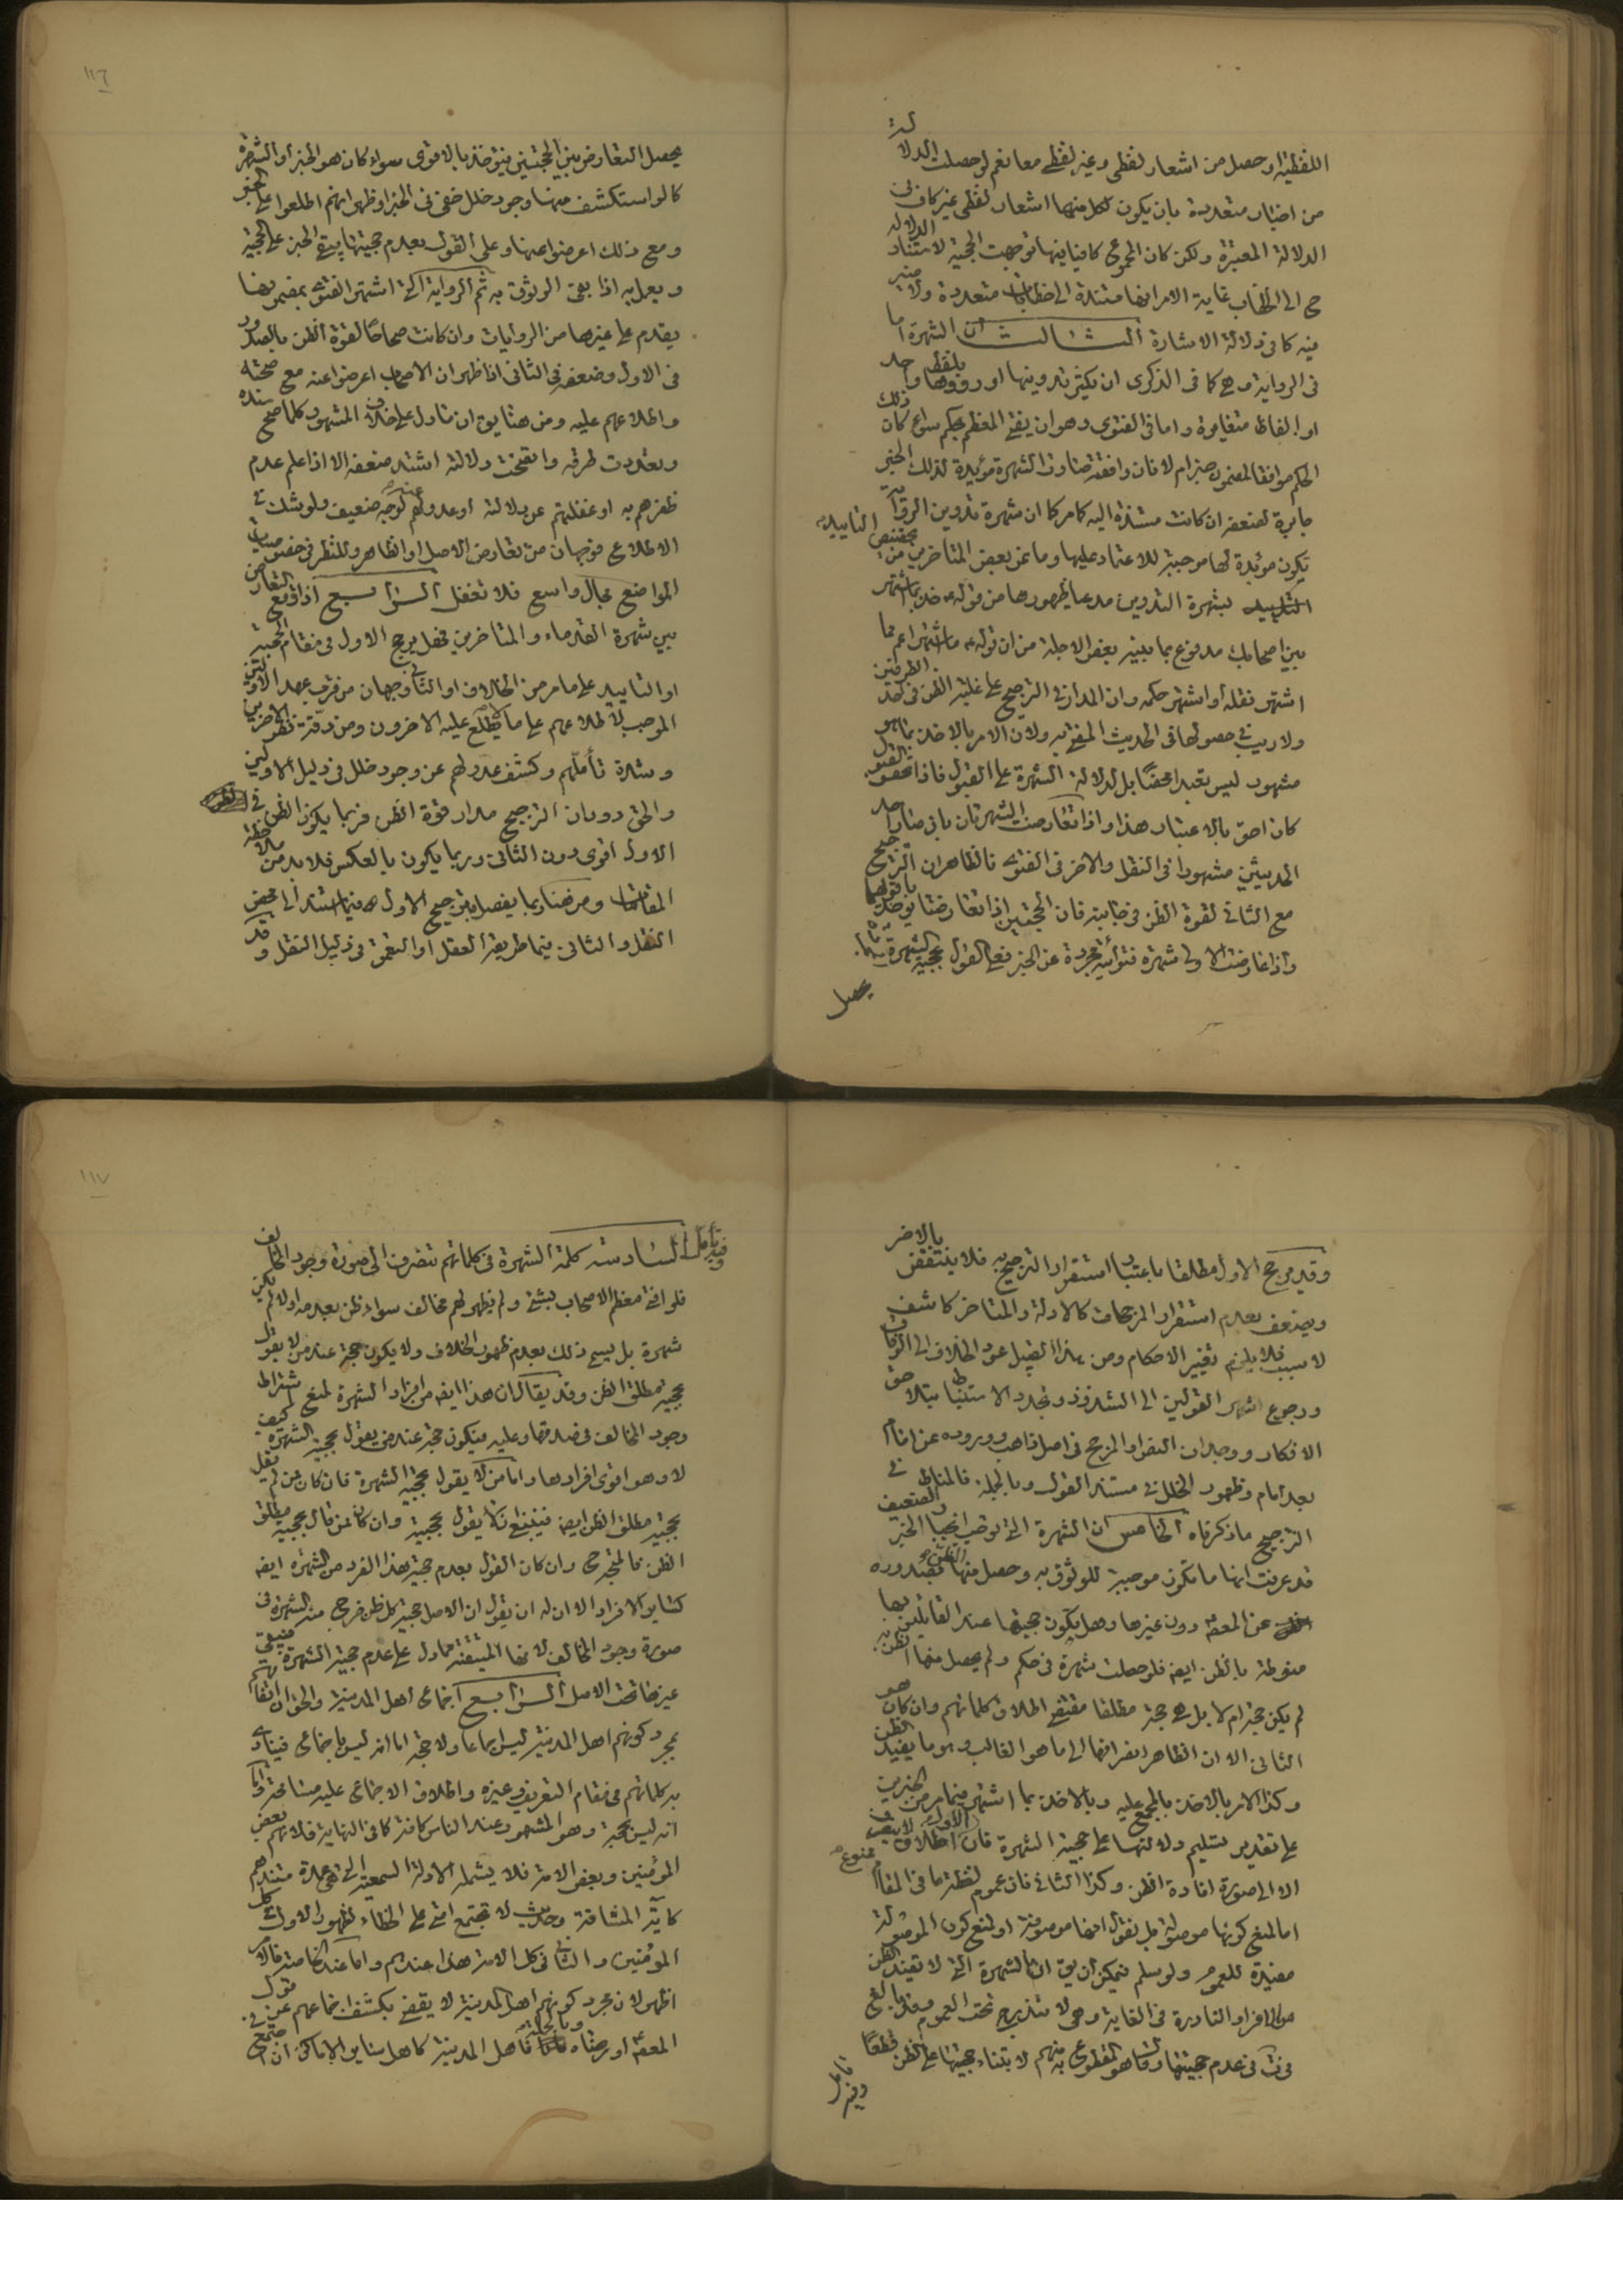 اللفظية او حصل من اشعار لفظى وغير لفظى معا نعم لو حصلت الدلالة
من اخبار متعددة بان يكون لكل منها اشعار لفظى غير كاف فى
الدلالة المعتبرة ولكن كان المجموع كافيا فيها توجهت الحجية لاستناد الدلالة
ح الى الخطاب غاية الامر انها مستندة الى خطابات متعددة ولا ضير
فيه كما فى دلالة الاشارة الثالث ان الشهرة اما
فى الرواية وهى كما فى الذكرى ان يكثر تدوينها او رووها بلفظ واحد
او الفاظ متغايرة واما فى الفتوى وهو ان يفتى المعظم بحكم سواء كان ذلك
الحكم موافقا لمضمون خبر ام لا فان وافقته صارت الشهرة مؤيدة لذلك الخبر
جابرة لضعفه ان كانت مستندة اليه كما مر كما ان شهرة تدوين الرواية
تكون مؤيدة لها موجبة للاعتماد عليها وما عن بعض المتاخرين من تخصيص التاييد
بشهرة التدوين مدعيا ظهورها من قوله ع خذ بما اشتهر
بين اصحابك مدفوع بما بينه بعض الاجلة من ان قوله ع ما اشتهر اعم مما
اشتهر نقله او اشتهر حكمه وان المدار فى الترجيح على غلبة الظن فى احد الطرفين
ولا ريب فى حصولها فى الحديث المفتى به ولان الامر بالاخذ بما هو
مشهور ليس تعبدا محضا بل لدلالة الشهرة على القبول فاذا تحقق القبول
كان احق بالاعتبار هذا واذا تعارضت الشهرتان بان صار احد
الحديثين مشهورا فى النقل والاخر فى الفتوى فالظاهر ان الترجيح
مع الثانى لقوة الظن فى جانبه فان الحجتين اذا تعارضتا يؤخذ باقواهما
واذا عارضت الاولى شهرة فتوائية مجردة عن الخبر فعلى القول بحجية الشهرة
يحصل
١١٦
يحصل التعارض بين الحجتين فيؤخذ بالاقوى سواء كان هو الخبر او الشهرة
كما لو استكشف منها وجود خلل خفى فى الخبر او ظهر انهم اطلعوا على الخبر
ومع ذلك اعرضوا عنها وعلى القول بعدم حجيتها يبقى الخبر على الحجية
ويعمل به اذا بقى الوثوق به ثم الرواية التى اشتهر الفتوى بمضمونها
يقدم على غيرها من الروايات وان كانت صحاحا لقوة الظن بالصدور
فى الاول وضعفه فى الثانى اذا ظهر ان الاصحاب اعرضوا عنه مع صحته
واطلاعهم عليه ومن هنا يق ان ما دل على خلاف المشهور كلما صح سنده
وتعددت طرقه واتضحت دلالته اشتد ضعفه الا اذا علم عدم
ظفرهم به او غفلتهم عن دلالته او عدولهم عنه لوجه ضعيف ولو شك فى
الاطلاع فوجهان من تعارض الاصل او الظاهر وللنظر فى خصوصيات
المواضع مجال واسع فلا تغفل الرابع اذا وقع التعارض
بين شهرة القدماء والمتاخرين فهل يرجح الاول فى مقام الحجية
او التاييد على ما مر من الخلاف او الثانى وجهان من قرب عهد الاولين
الموجب لاطلاعهم على ما لم يطلع عليه الاخرون ومن دقة نظر الاخرين
وشدة تأملهم وكشف عدولهم عن وجود خلل فى دليل الاولين
والحق دوران الترجيح مدار قوة الظن فربما يكون الظن فى
الاول اقوى دون الثانى وربما يكون بالعكس فلا بد من ملاحظة
المقامات ومن هنا ربما يفصل بترجيح الاول فيما استند الى محض
النقل والثانى فيما طريقه العقل او التعمق فى دليل النقل وقد
وقد يرجح الاول مطلقا باعتبار استقرار الترجيح به فلا ينتقض بالاخر
ويضعف بعدم استقرار المرجحات كالادلة والمتاخر كاشف
لا سبب فلا يلزم تغيير الاحكام ومن هذا القبيل عود الخلاف الى الوفاق
ورجوع اشهر القولين الى الشذوذ وتجدد الاستنباط بتلاحق
الافكار ووجدان النص او المرجح فى اصل ذاهب ووروده عن امام
بعد امام وظهور الخلل فى مستند القول وبالجملة فالمناط فى
الترجيح ما ذكرناه الخامس ان الشهرة التى توجب انجبار الخبر الضعيف
قد عرفت انها ما تكون موجبة للوثوق به وحصل منها الظن بصدوره
عن المعصوم دون غيرها وهل يكون حجيتها عند القائلين بها
منوطة بالظن ايضا فلو حصلت شهرة فى حكم ولم يحصل منها الظن به
لم يكن حجة ام لا بل هى حجة مطلقا مقتضى اطلاق كلماتهم وان كان هو
الثانى الا ان الظاهر انصرافها الى ما هو الغالب وهو ما يفيد الظن
وكذا الامر بالاخذ بالمجمع عليه وبالاخذ بما اشتهر فيما مر من الخبرين
على تقدير تسليم دلالتها على حجية الشهرة فان اطلاق الاول لا ينصرف
الا الى صورة افادة الظن وكذا الثانى فان عموم لفظة ما فى المقام ممنوع
اما لمنع كونها موصولة بل نقول انها موصوفة او لمنع كون الموصولة
مفيدة للعموم ولو سلم فيمكن ان يق ان الشهرة التى لا تفيد الظن
من الافراد النادرة فى الغاية وهى لا تندرج تحت العموم وقد بالغ
فى عدم حجيتها وقال هو المقطوع به منهم لابتناء حجيتها على الظن قطعا
وفيه تامل
١١٧
وفيه تأمل السادس كلمة الشهرة فى كلماتهم تنصرف الى صورة وجود المخالف
فلو افتى معظم الاصحاب بشئ ولم يظهر لهم مخالف سواء ظن بعدمه اولا لم يكن
شهرة بل يسمى ذلك بعدم ظهور الخلاف ولا يكون حجة عند من لا يقول
بحجية مطلق الظن وقد يقال ان هذا ايضا من افراد الشهرة لمنع اشتراط
وجود المخالف فى صدقها وعليه فيكون حجة عند من يقول بحجية الشهرة كيف
لا وهو اقوى افرادها واما من لا يقول بحجية الشهرة فان كان ممن لم يقل
بحجية مطلق الظن ايضا فينبغى ان لا يقول بحجيته وان كان ممن قال بحجية مطلق
الظن فالمتجه ح وان كان القول بعدم حجية هذا الفرد من الشهرة ايضا
كساير الافراد الا ان له ان يقول ان الاصل حجية كل ظن خرج منه الشهرة فى
صورة وجود المخالف لانها المتيقنة مما دل على عدم حجية الشهرة فيبقى
غيرها تحت الاصل السابع اجماع اهل المدينة والحق ان اتفاقهم
بمجرد كونهم اهل المدينة ليس اجماعا ولا حجة اما انه ليس باجماع فينادى
به كلماتهم فى مقام التعريف وغيره واطلاق الاجماع عليه مسامحة واما
انه ليس بحجة وهو المشهور عند الناس كافة كما فى النهاية فلانهم بعض
المؤمنين وبعض الامة فلا يشمله الادلة السمعية التى هى عمدة مستندهم
كآية المشاقة وحديث لا تجتمع امتى على الخطاء لظهور الاول فى كل
المؤمنين والثانى فى كل الامة هذا عندهم واما عند الخاصة فالامر
اظهر لان مجرد كونهم اهل المدينة لا يقضى بكشف اجماعهم عن قول
المعصوم او رضاه وبالجملة فاهل المدينة كاهل ساير الاماكن ان اجتمع فى